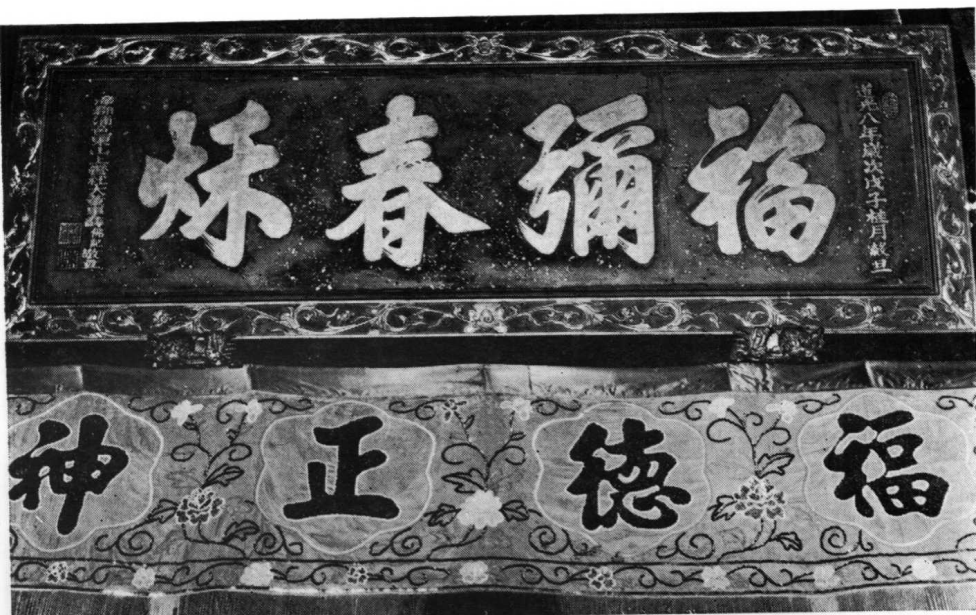 道光八年歲次戊子桂月穀旦
福彌春秌
敬立
福德正神